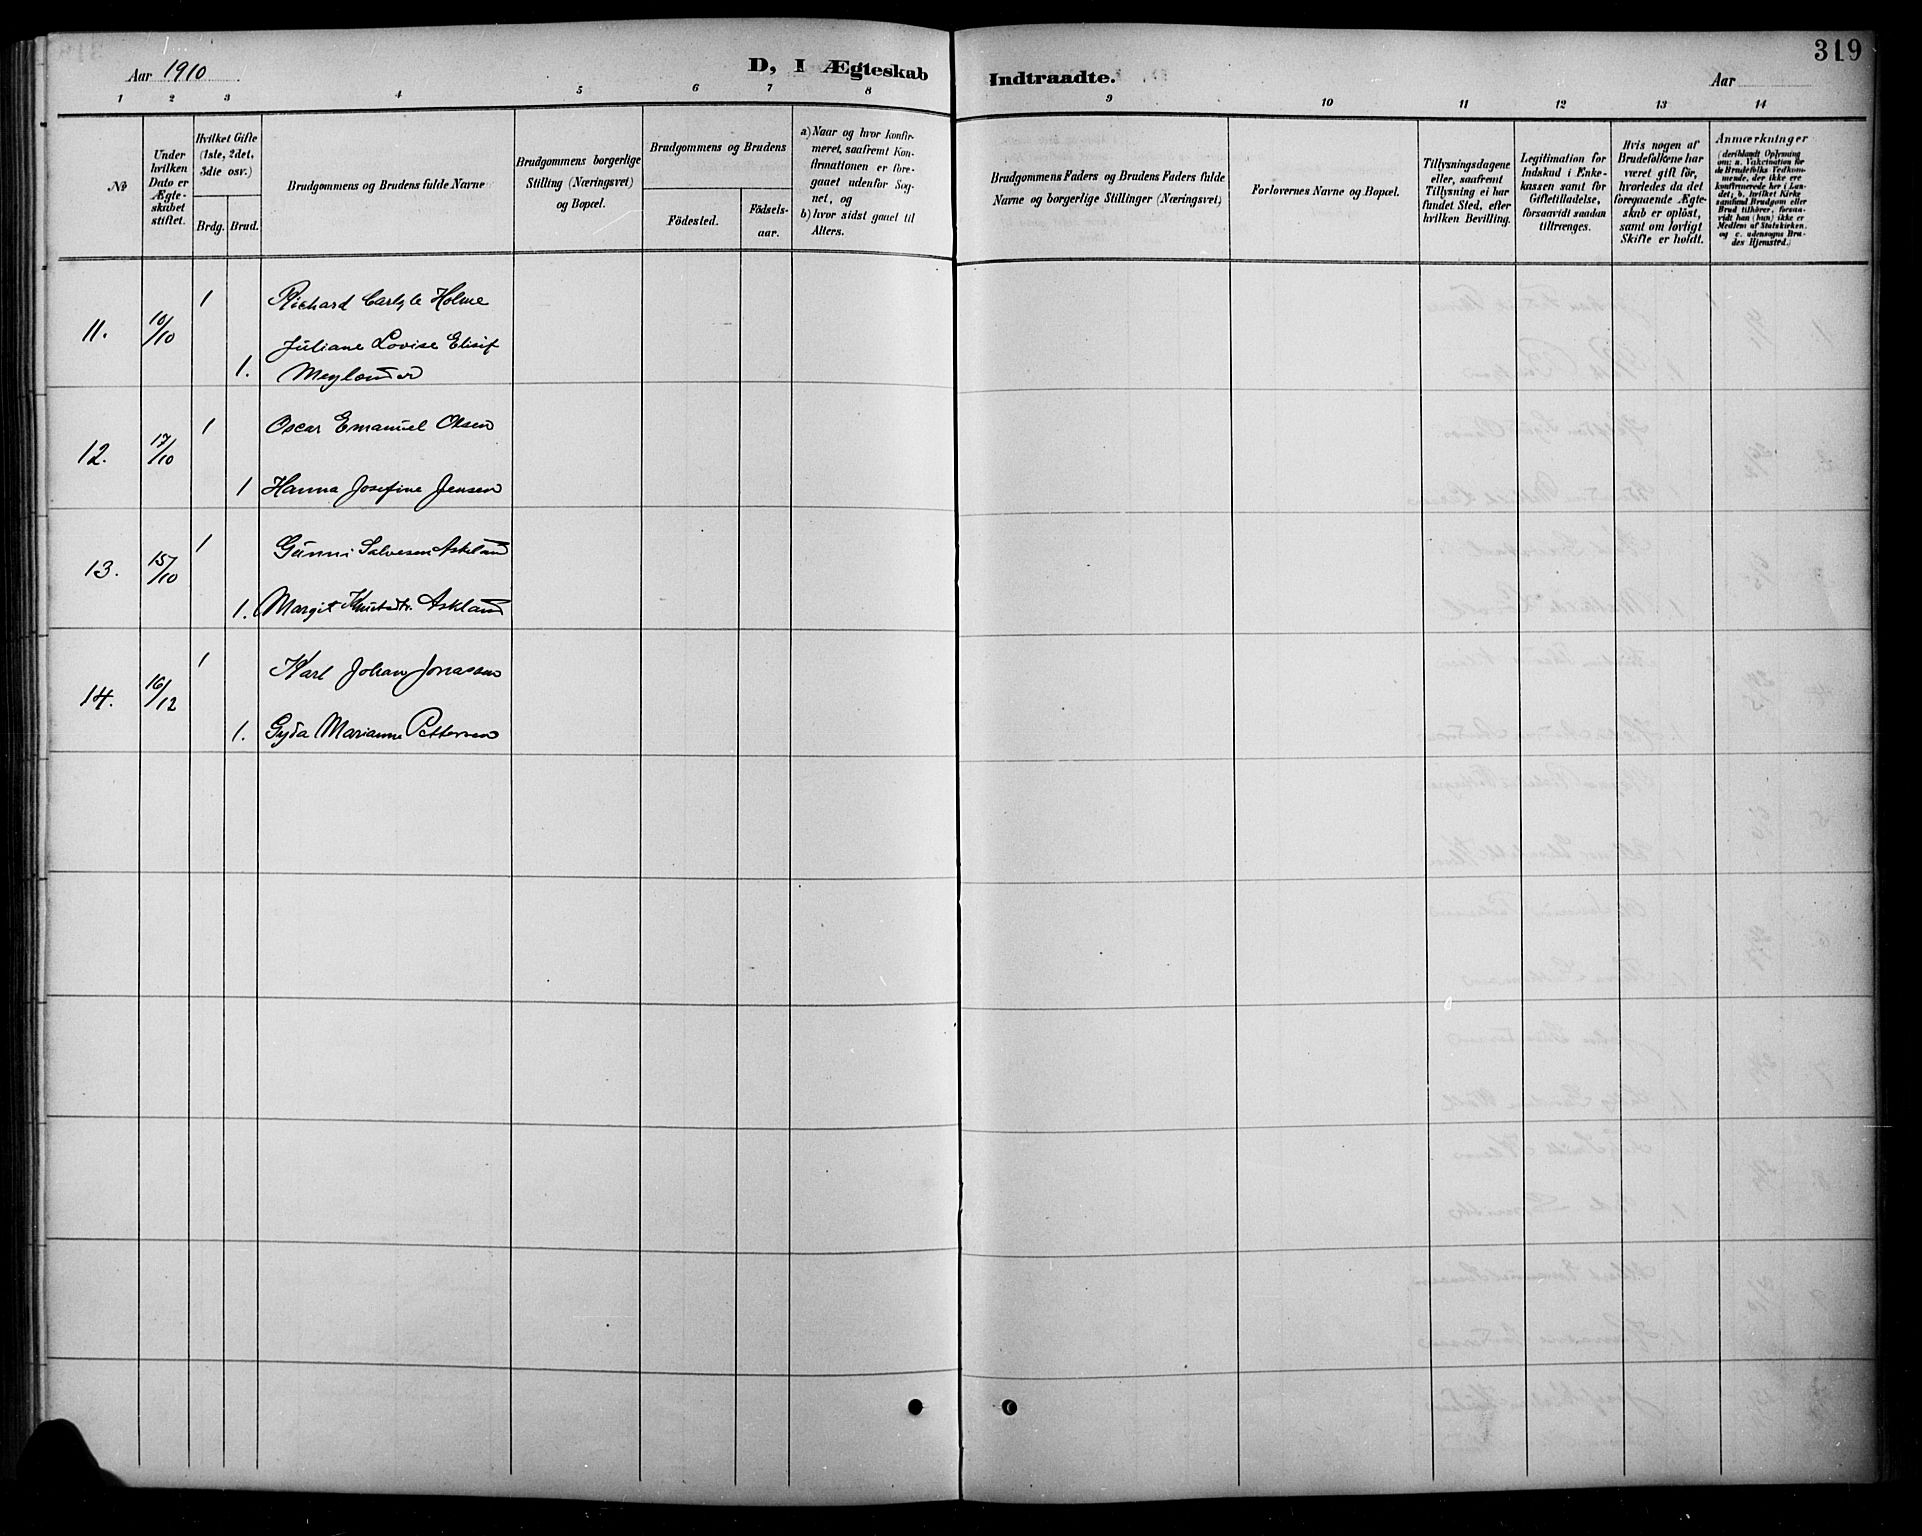 319
Aar 1910
D, I Ægteskab
Indtraadte.
Aar
1 2 3 4 5 6 7 8 9 10 11 12 13 14
No
Under hvilken Dato er Ægte-skabet stiftet.
Hvilket Gifte (1ste, 2det, 3die osv.)
Brdg. Brud.
Brudgommens og Brudens fulde Navne
Brudgommens borgerlige Stilling (Næringsvei) og Bopæl.
Brudgommens og Brudens
Födested.
Födsels-aar.
a) Naar og hvor konfir-meret, saafremt Kon-firmationen er fore-gaaet udenfor Sog-net, og
b) hvor sidst gaaet til Alters.
Brudgommens Faders og Brudens Faders fulde Navne og borgerlige Stillinger (Næringsvei)
Forlovernes Navne og Bopæl.
Tillysningsdagene eller, saafremt Tillysning ei har fundet Sted, efter hvilken Bevilling.
Legitimation for Indskud i Enke-kassen samt for Giftetilladelse, forsaavidt saadan tiltrænges.
Hvis nogen af Brudefolkene har været gift för, hvorledes da det foregaaende Ægte-skab er oplöst, samt om lovligt Skifte er holdt.
Anmærkninger
(deriblandt Oplysning om: a. Vakcination for de Brudefolks Vedkom-mende, der ikke ere konfirmerede her i Lan-det; b. hvilket Kirke-samfund Brudgom eller Brud tilhörer, forsaa-vidt han (hun) ikke er Medlem af Statskirken, og c. udensogns Bru-des Hjemsted.)
11. 10/10 1 Richard Carlyle Holme
1. Juliane Lovise Elisif
Meylænder
12. 17/10 1 Oscar Emanuel Olsen
1 Hanna Josefine Jensen
13. 15/10 1 Gunni Salvesen Askland
1. Margit Knutsdtr. Askland
14. 16/12 1 Karl Johan Jonassen
1. Gyda Marianne Pettersen